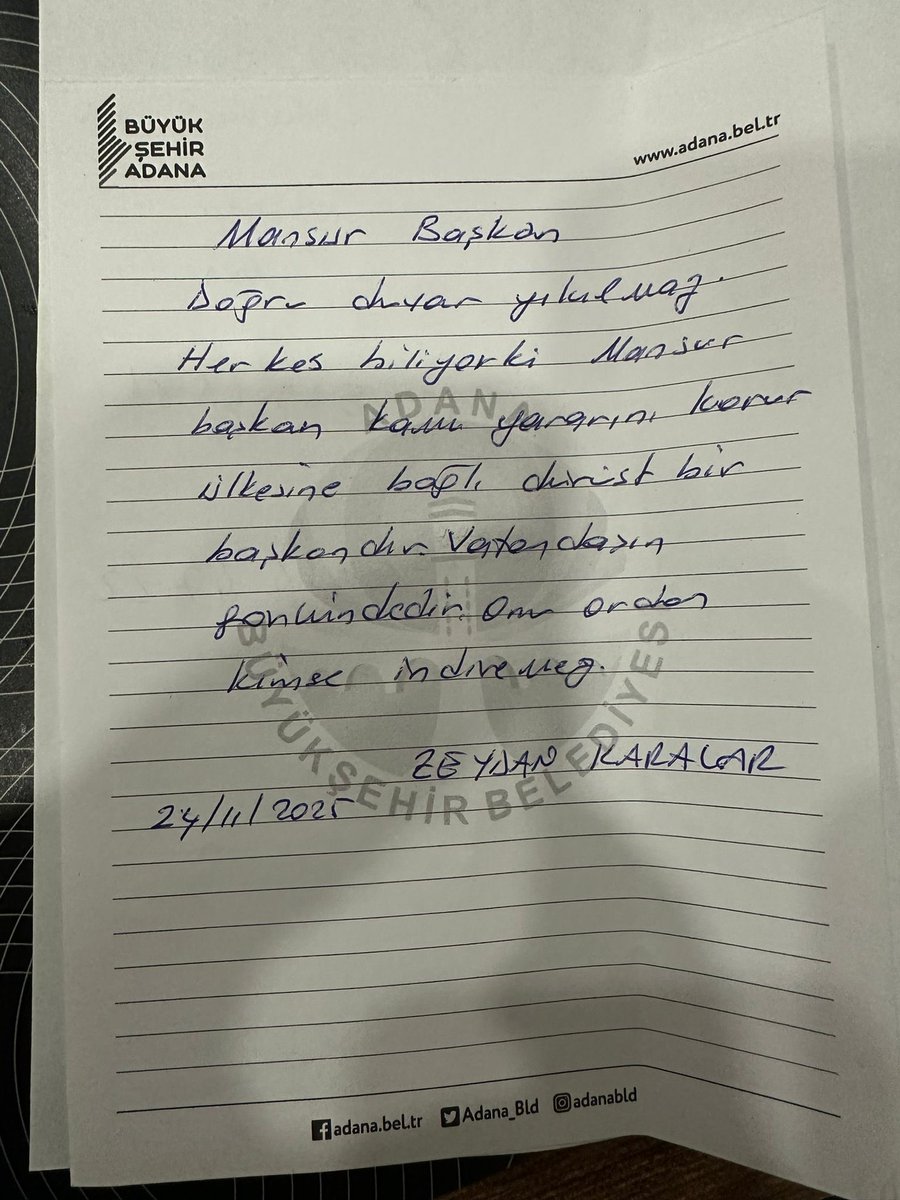 BÜYÜK
ŞEHİR
ADANA
www.adana.bel.tr
Mansur Başkan
Doğru duvar yıkılmaz.
Herkes biliyorki Mansur
başkan kamu yararını korur
ülkesine bağlı dürüst bir
başkandır. Vatandaşın
gönlündedir. Onu ordan
kimse indiremez.
ZEYDAN KARALAR
24/11/2025
ADANA
BÜYÜKŞEHİR BELEDİYES
adana.bel.tr Adana_Bld adanabld